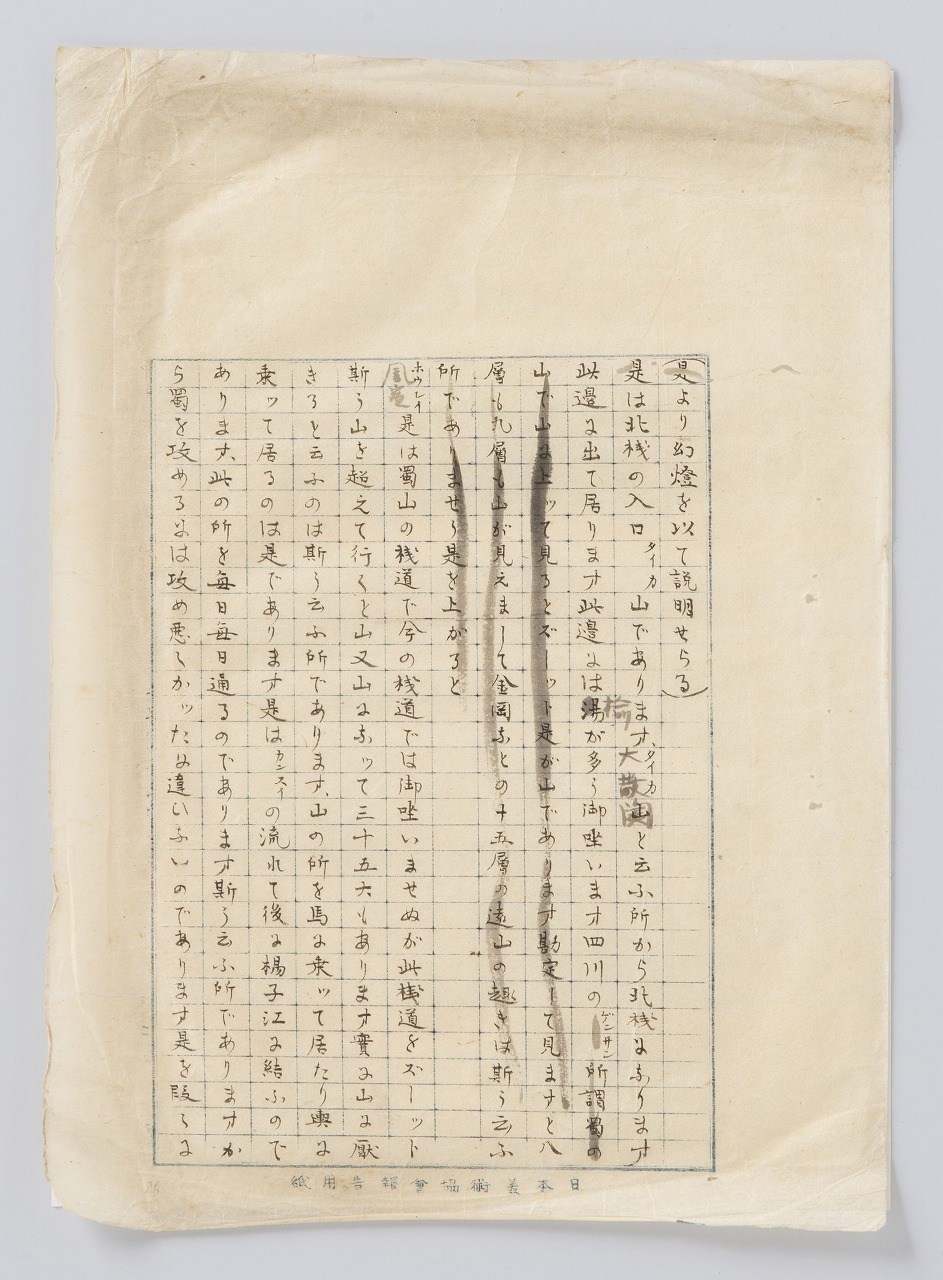 (是より幻燈を以て説明せらる)
是は北桟の入口タイカ山であります、タイカ山と云ふ所から北桟になります
大散関
此邊に出て居ります此邊には湯が多う御坐います四川のゲンサン所謂蜀の
山で山に上ッて見るとズーット是が山であります勘定して見ますと八
層も九層も山が見えまして金岡などの十五層の遠山の趣きは斯う云ふ
所でありませう是を上がると
ホウレイ是は蜀山の桟道で今の桟道では御坐いませぬが此桟道をズーット
斯う山を超えて行くと山又山になッて三十五六もあります實に山に厭
きると云ふのは斯う云ふ所であります、山の所を馬に乗ッて居たり輿に
乗ッて居るのは是であります是はカンスイの流れて後に楊子江に結ふので
あります、此の所を毎日毎日通るのであります斯う云ふ所でありますか
ら蜀を攻めるには攻め悪くかッたに違いないのであります是を段々に
日本美術協會報告用紙